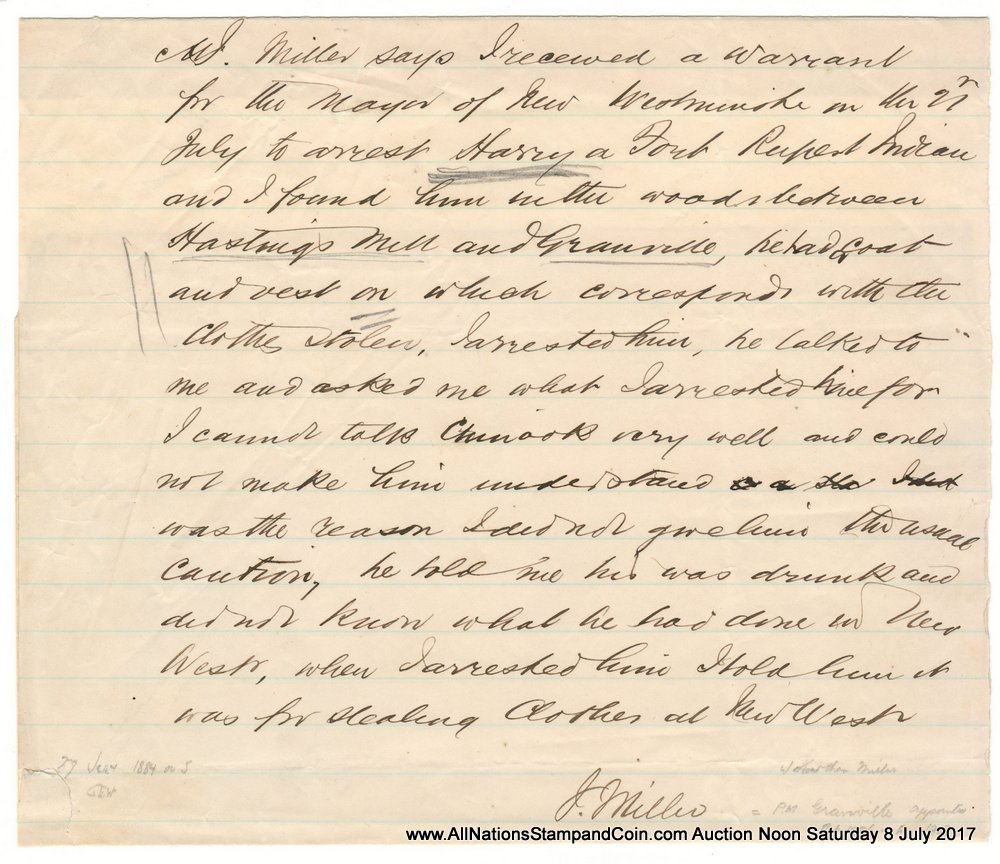 Mr. Miller says I received a warrant
for the Mayor of New Westminster on the 27
July to arrest Harry a Fort Rupert Indian
and I found him in the woods between
Hastings Mill and Granville, he had Coat
and vest on which corresponds with the
Clothes Stolen, I arrested him, he talked to
me and asked me what I arrested him for
I cannot talk Chinook very well and could
not make him understand
was the reason I did not give him the usual
caution, he told me he was drunk and
did not know what he had done in New
Westr, when I arrested him I told him it
was for stealing Clothes at New Westr
1884
J. Miller
Johnathan Miller
= P.M. Granville appointed
www.AllNationsStampandCoin.com Auction Noon Saturday 8 July 2017